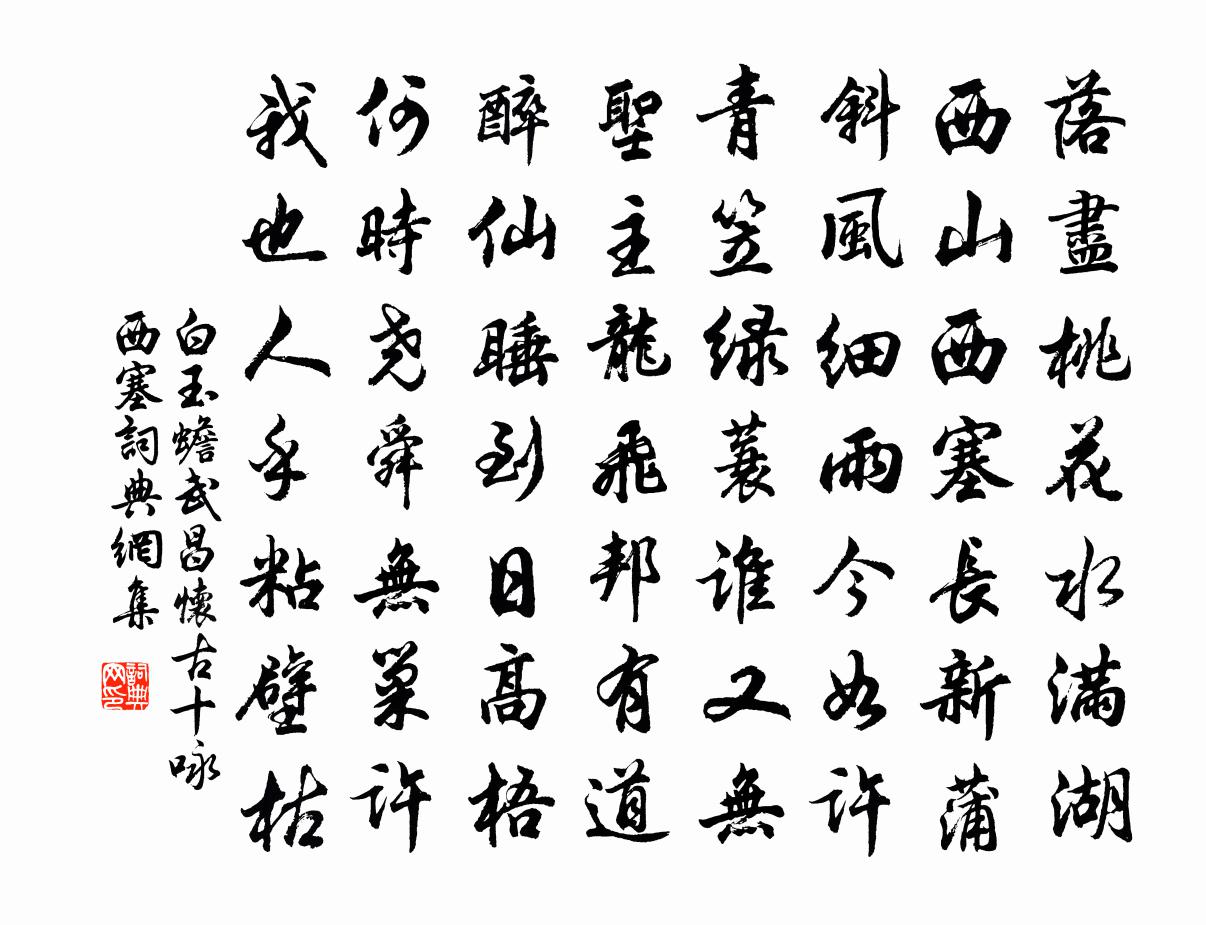 落盡桃花水满湖
西山西塞長新蒲
斜風细雨今如许
青笠绿蓑誰又無
聖主龍飛邦有道
醉仙睡到日高梧
何時尧舜無巢许
我也人乎粘壁枯
白玉蟾武昌懷古十咏
西塞詞典網集
詞典
网印